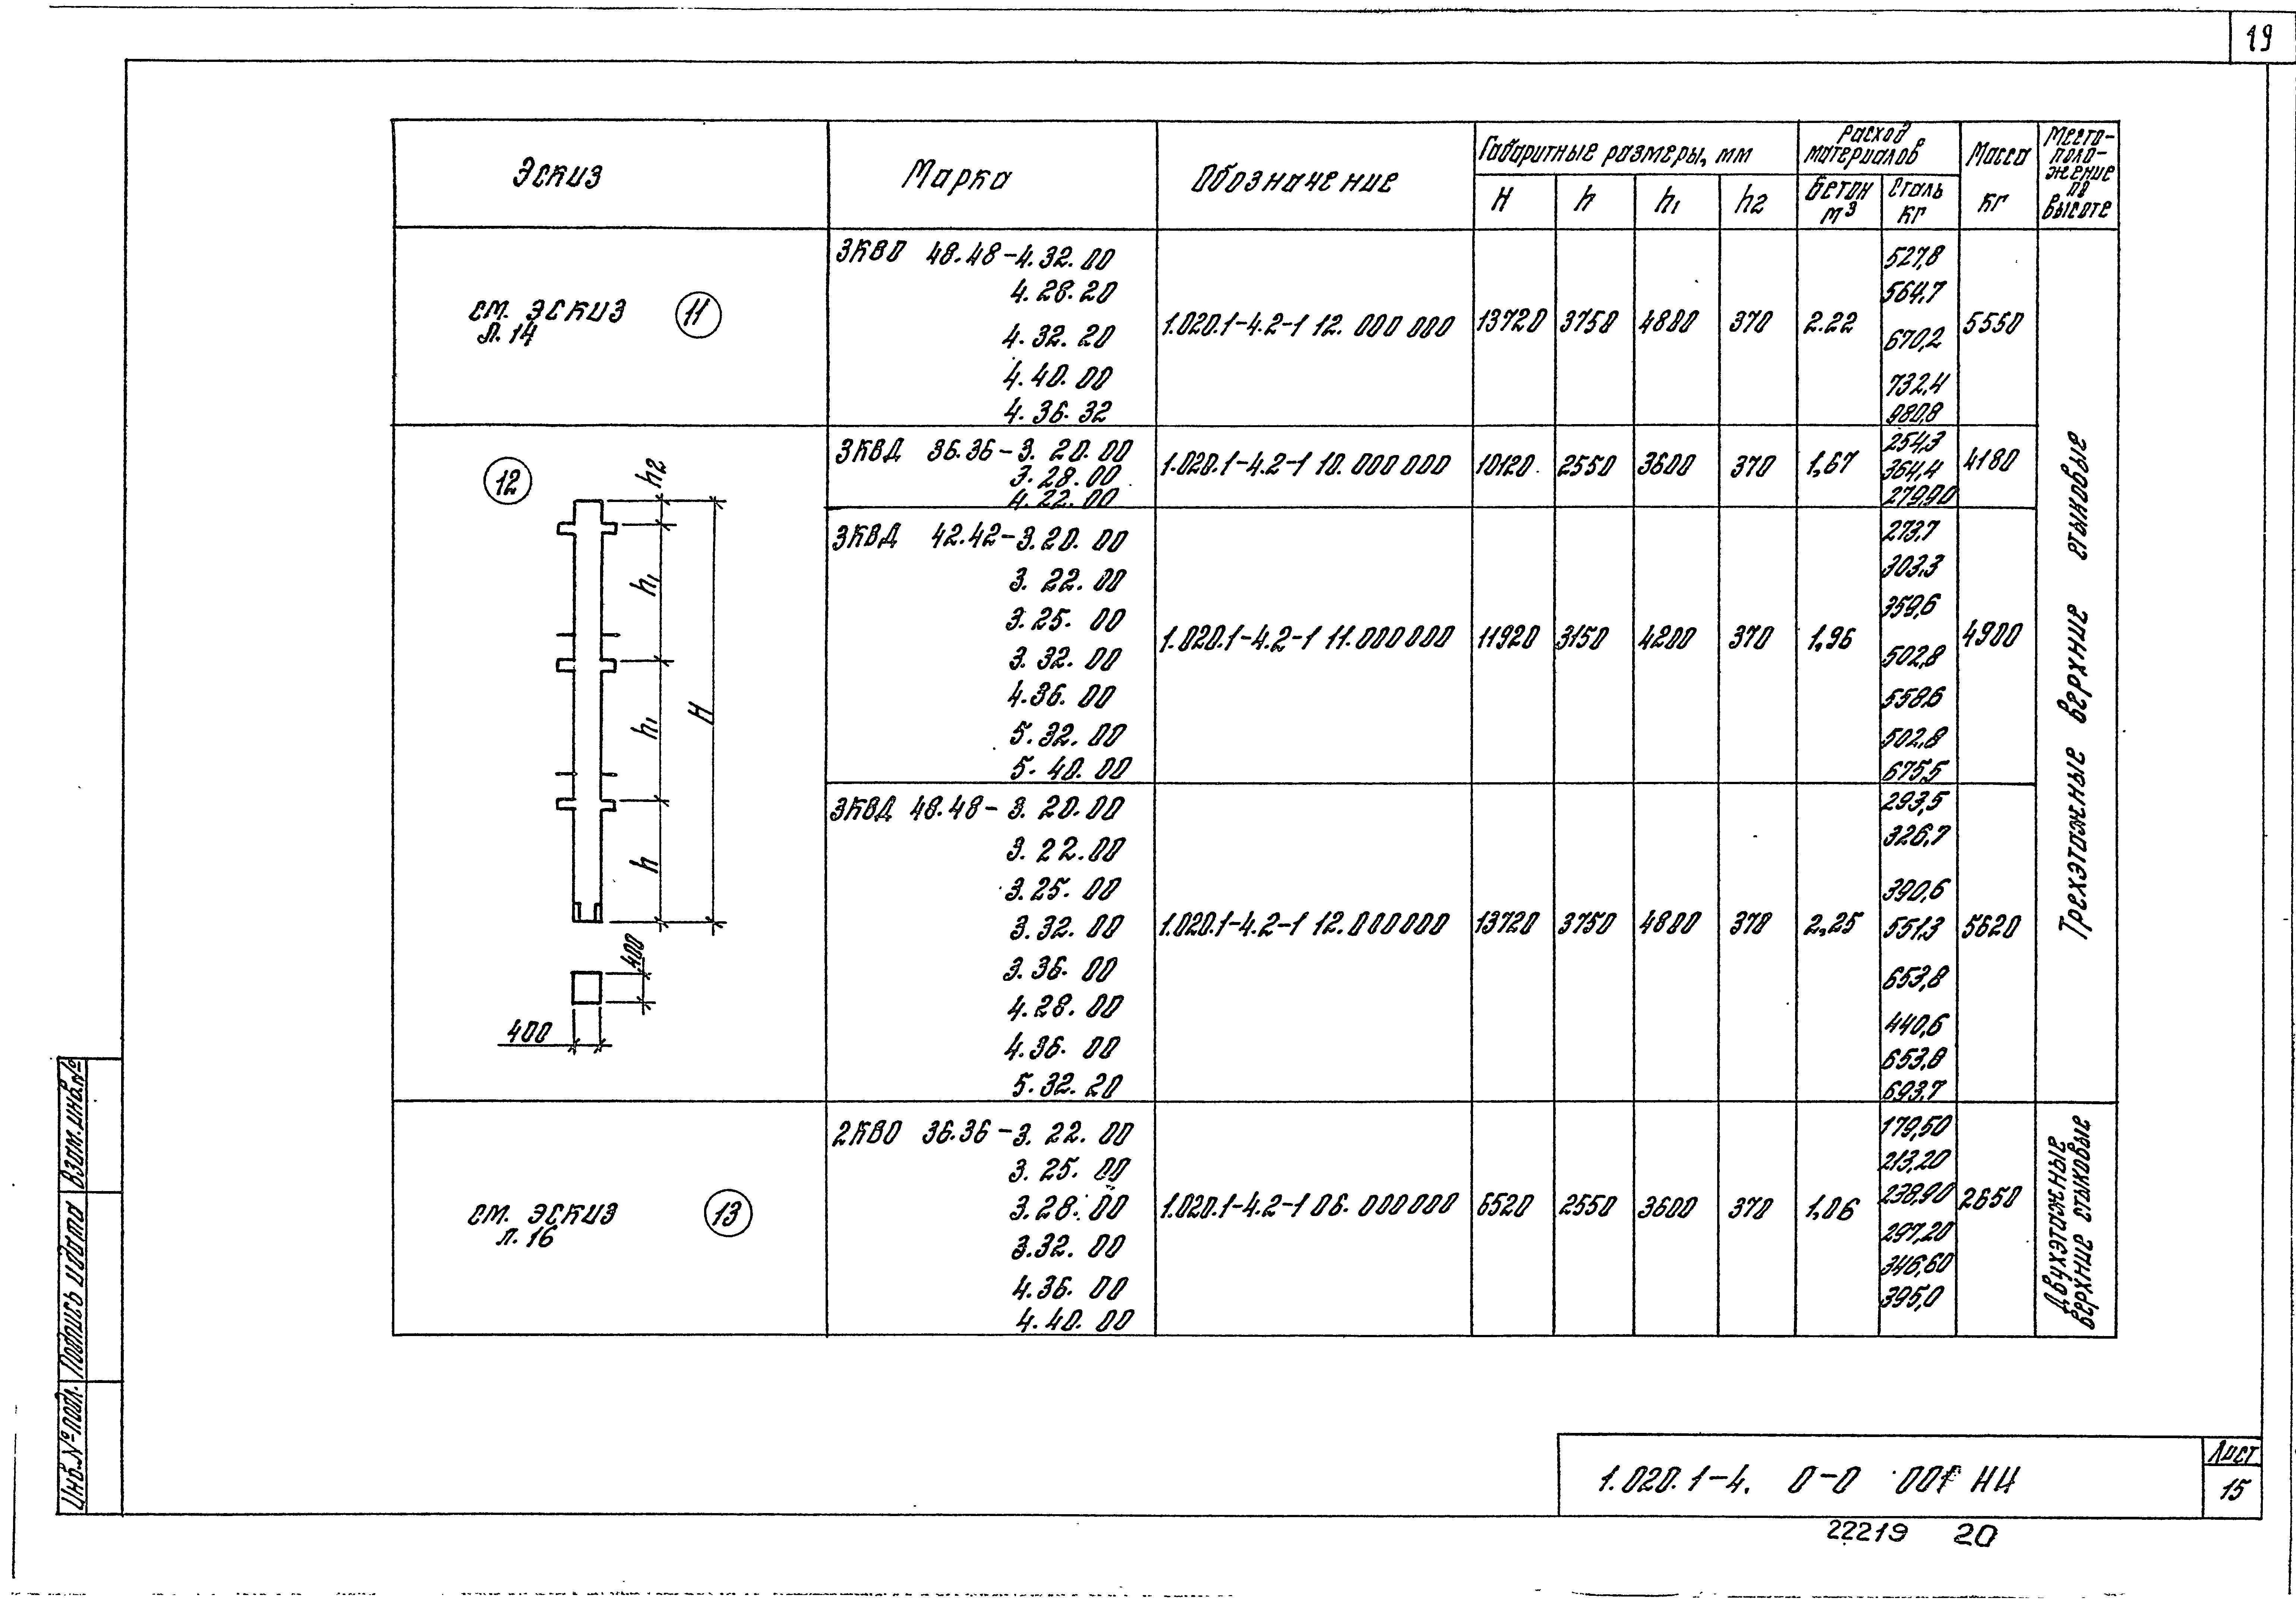 19
Эскиз
Марка
Обозначение
Габаритные размеры, мм
H
h
h1
h2
Расход
материалов
бетон
м3
Сталь
кг
Масса
кг
Место-
поло-
жение
по
высоте
см. эскиз
л. 14
11
3КВО 48.48-4.32.00
4.28.20
4.32.20
4.40.00
4.36.32
1.020.1-4.2-1 12.000000 13720 3750 4800 370 2.22 5550
527,8
564,7
670,2
732,4
980,8
12
h2
h1
h1
h
H
400
400
3КВД 36.36-3.20.00
3.28.00
4.22.00
1.020.1-4.2-1 10.000000 10120 2550 3600 370 1,67 4180
254,3
364,4
279,90
3КВД 42.42-3.20.00
3.22.00
3.25.00
3.32.00
4.36.00
5.32.00
5.40.00
1.020.1-4.2-1 11.000000 11920 3150 4200 370 1,96 4900
273,7
303,3
359,6
502,8
558,6
502,8
675,5
3КВД 48.48-3.20.00
3.22.00
3.25.00
3.32.00
3.36.00
4.28.00
4.36.00
5.32.20
1.020.1-4.2-1 12.000000 13720 3750 4800 370 2,25 5620
293,5
326,7
390,6
551,3
653,8
440,6
653,8
693,7
Трехэтажные верхние стыковые
см. эскиз
л. 16
13
2КВО 36.36-3.22.00
3.25.00
3.28.00
3.32.00
4.36.00
4.40.00
1.020.1-4.2-1 06.000000 6520 2550 3600 370 1,06 2650
179,50
213,20
238,90
297,20
346,60
395,0
Двухэтажные
верхние стыковые
Взам.инв.№
Подпись и дата
Инв.№ подл.
1.020.1-4. 0-0 001 НИ
Лист
15
22219 20